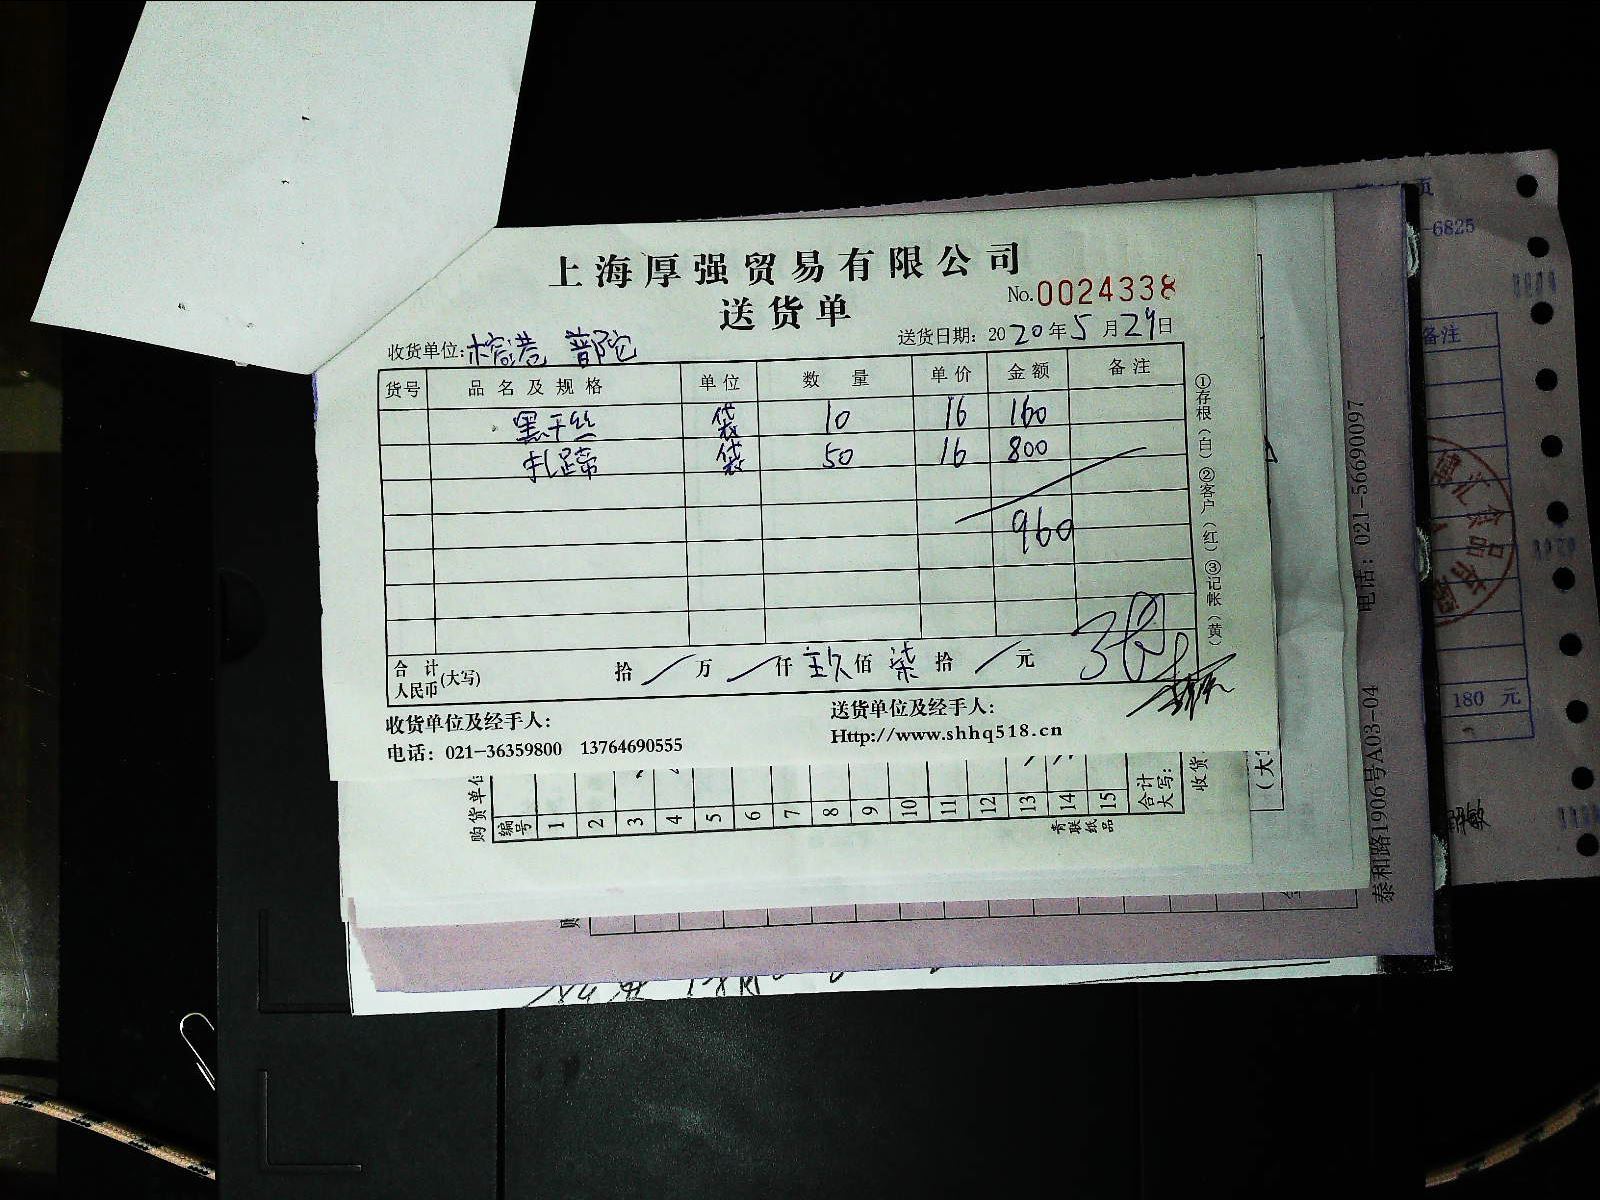 上海厚强贸易有限公司
送货单
No.0024338
收货单位: 普陀
送货日期: 2020年5月29日
货号 品名及规格 单位 数量 单价 金额 备注
黑干丝 袋 10 16 160
扎蹄 袋 50 16 800
960
合计人民币(大写) 拾 / 万 / 仟 玖 佰 柒 拾 / 元
收货单位及经手人:
送货单位及经手人:
电话: 021-36359800 13764690555
Http://www.shhq518.cn
①存根(白) ②客户(红) ③记帐(黄)
购货单位
编号 1 2 3 4 5 6 7 8 9 10 11 12 13 14 15 合计大写:
青联纸品
收货
(大
泰和路1906号A03-04 电话: 021-56690097
页
-6825
备注
180 元